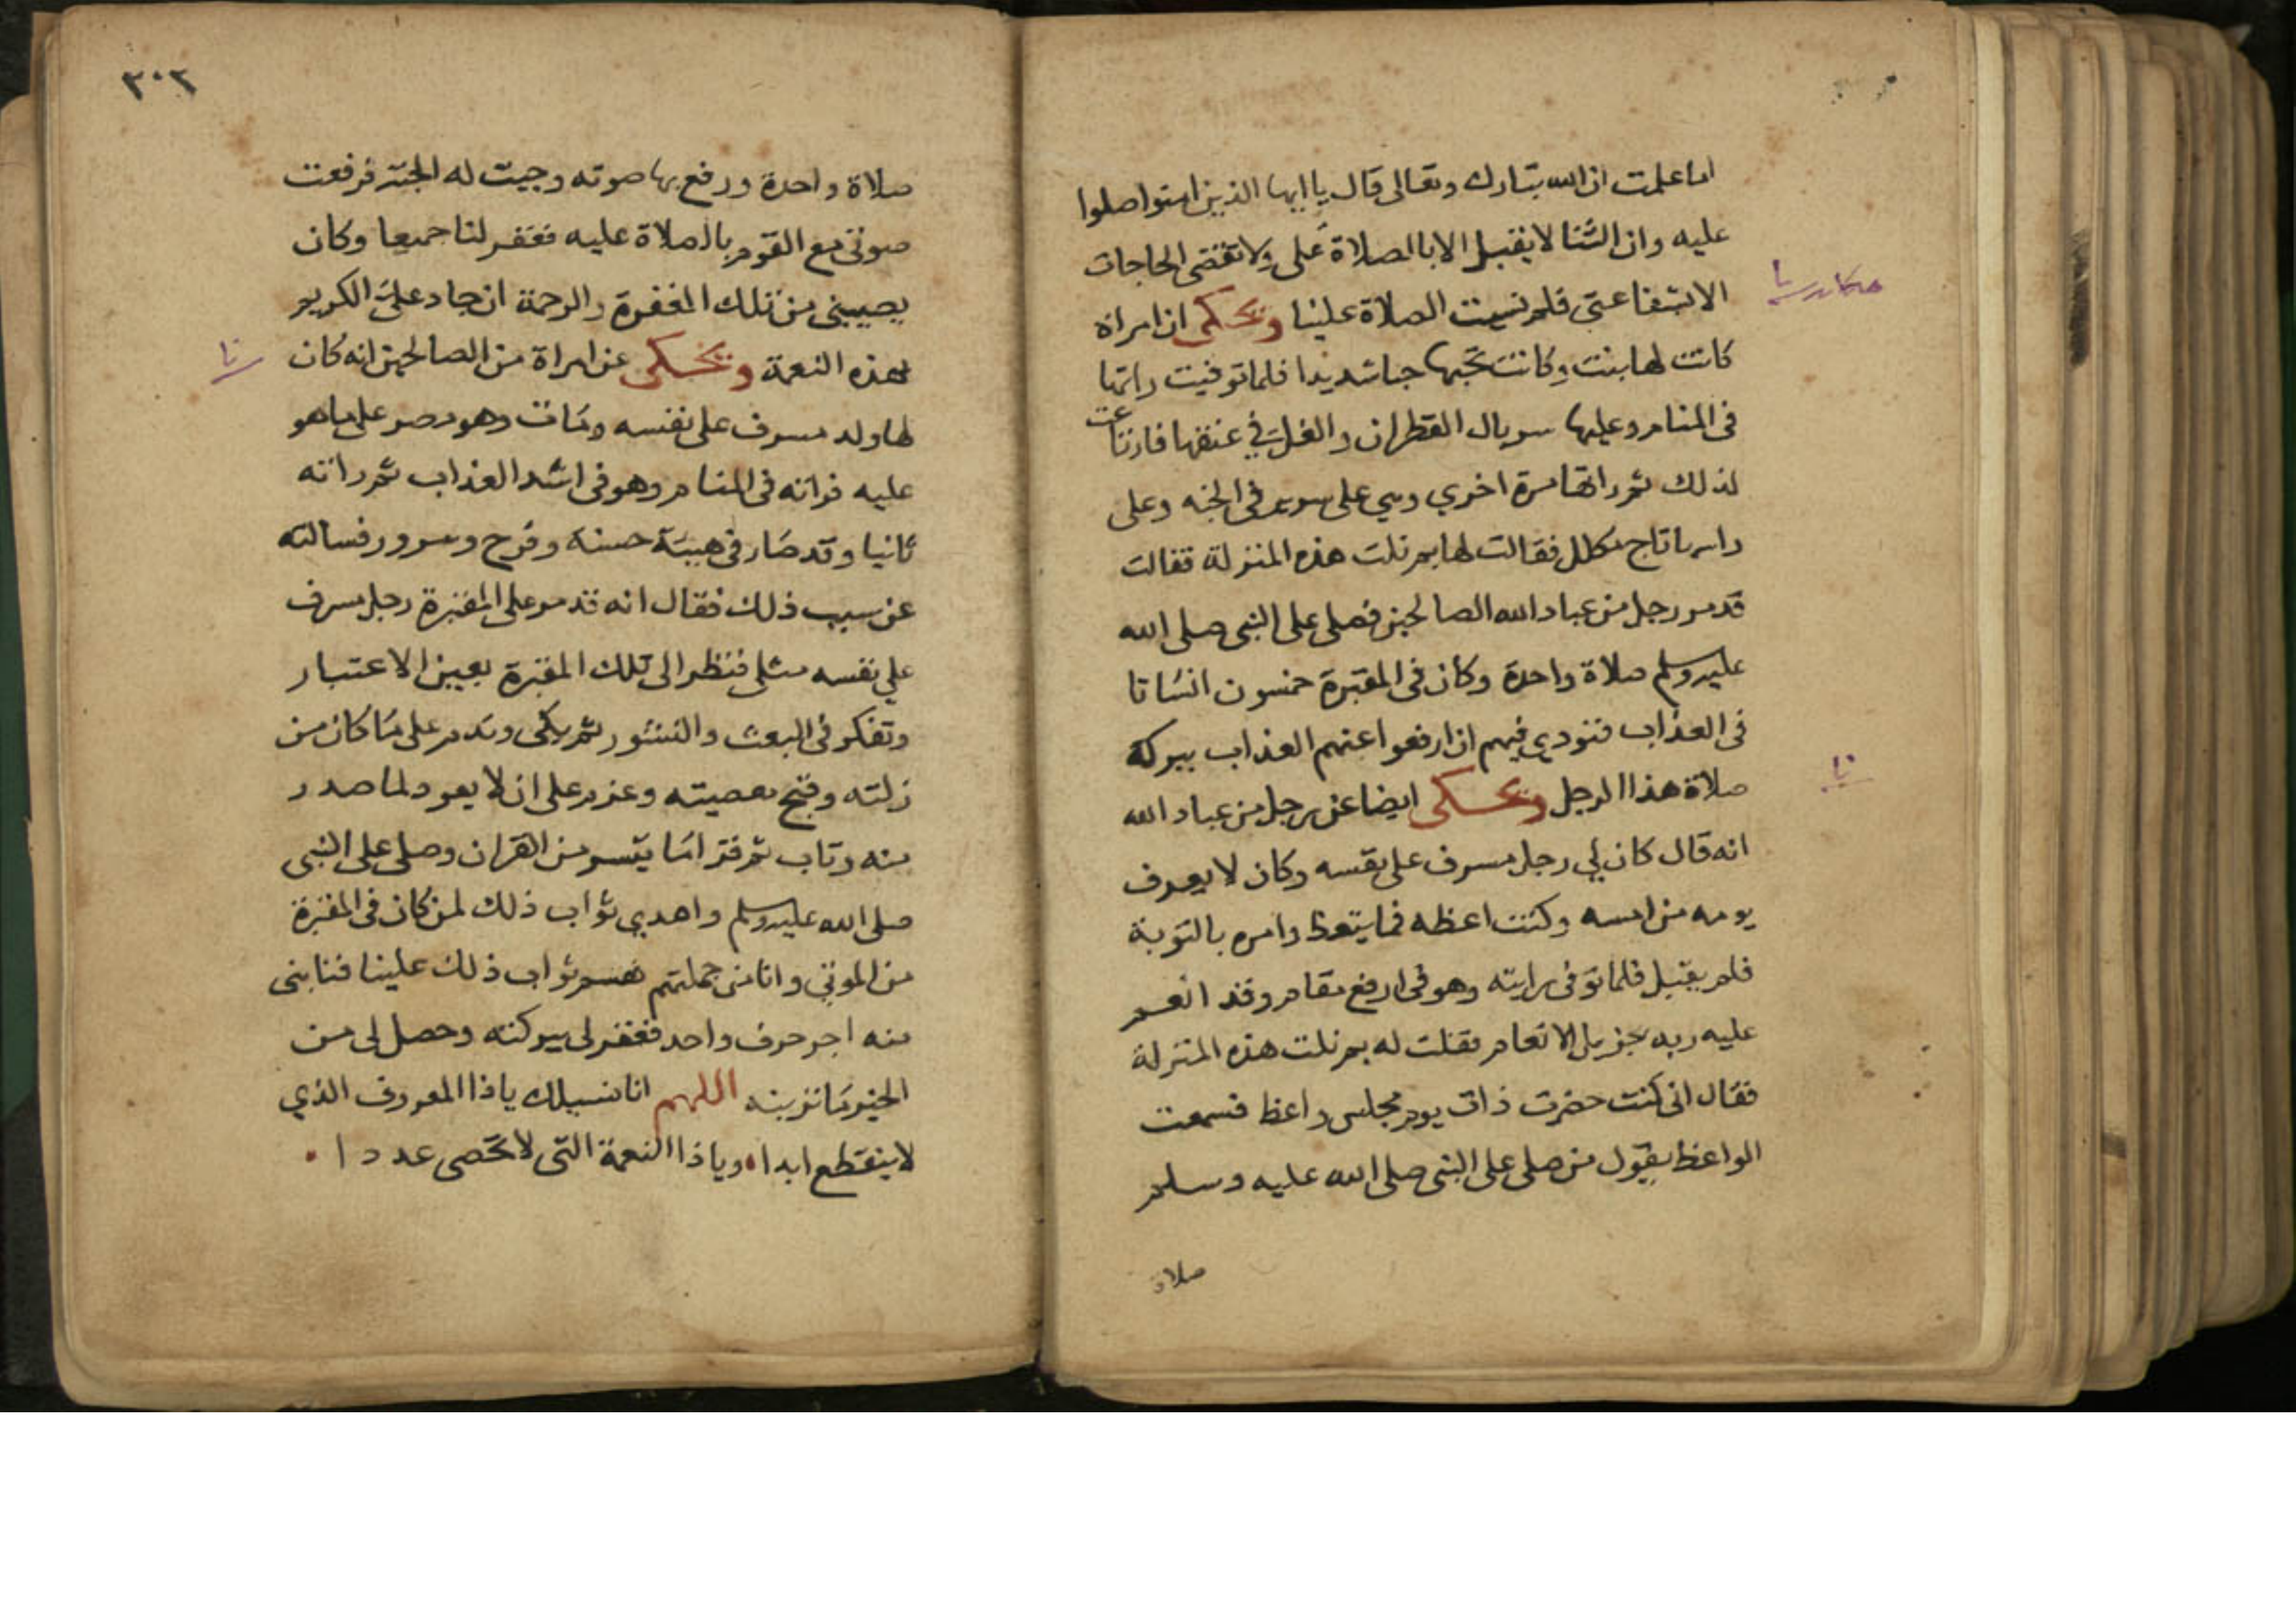 اما علمت ان الله تبارك وتعالى قال يا ايها الذين امنوا صلوا
عليه وان الثنا لا يقبل الا بالصلاة على ولا تقضى الحاجات
الا بشفاعتى فلم نسيت الصلاة علينا ويحكى ان امراة
كانت لها بنت وكانت تحبها حبا شديدا فلما توفيت راتها
فى المنام وعليها سربال القطران والغل في عنقها فارتاعت
لذلك ثم راتها مرة اخري وهي على سرير فى الجنه وعلى
راسها تاج مكلل فقالت لها بم نلت هذه المنزلة فقالت
قدم رجل من عباد الله الصالحين فصلى على النبى صلى الله
عليه وسلم صلاة واحدة وكان فى المقبرة خمسون انسانا
فى العذاب فنودي فيهم ان ارفعوا عنهم العذاب ببركة
صلاة هذا الرجل ويحكى ايضا عن رجل من عباد الله
انه قال كان لي رجل مسرف على نفسه وكان لا يعرف
يومه من امسه وكنت اعظه فما يتعظ وامره بالتوبة
فلم يقبل فلما توفى رايته وهو فى ارفع مقام وقد انعم
عليه ربه بجزيل الانعام فقلت له بم نلت هذه المنزلة
فقال انى كنت حضرت ذات يوم مجلس واعظ فسمعت
الواعظ يقول من صلى على النبى صلى الله عليه وسلم
صلاة
٣٠٢
صلاة واحدة ورفع بها صوته وجبت له الجنة فرفعت
صوتى مع القوم بالصلاة عليه فغفر لنا جميعا وكان
يصيبنى من تلك المغفرة والرحمة ان جاد على الكريم
بهذه النعمة ويحكى عن امراة من الصالحين انه كان
لها ولد مسرف على نفسه ومات وهو مصر على ما هو
عليه فراته فى المنام وهو فى اشد العذاب ثم راته
ثانيا وقد صار فى هيئة حسنة وفرح وسرور فسالته
عن سبب ذلك فقال انه قدم على المقبرة رجل مسرف
علي نفسه مثلى فنظر الى تلك المقبرة بعين الاعتبار
وتفكر فى البعث والنشور ثم بكى وندم على ما كان من
زلته وقبح معصيته وعزم على ان لا يعود لما صدر
منه وتاب ثم قرا ما تيسر من القران وصلى على النبى
صلى الله عليه وسلم واهدي ثواب ذلك لمن كان فى المقبرة
من الموتى وانا من جملتهم فقسم ثواب ذلك علينا فنابنى
منه اجر حرف واحد فغفر لى ببركته وحصل لى من
الخير ما ترينه اللهم انا نسيلك يا ذا المعروف الذي
لا ينقطع ابدا ويا ذا النعمة التى لا تحصى عددا